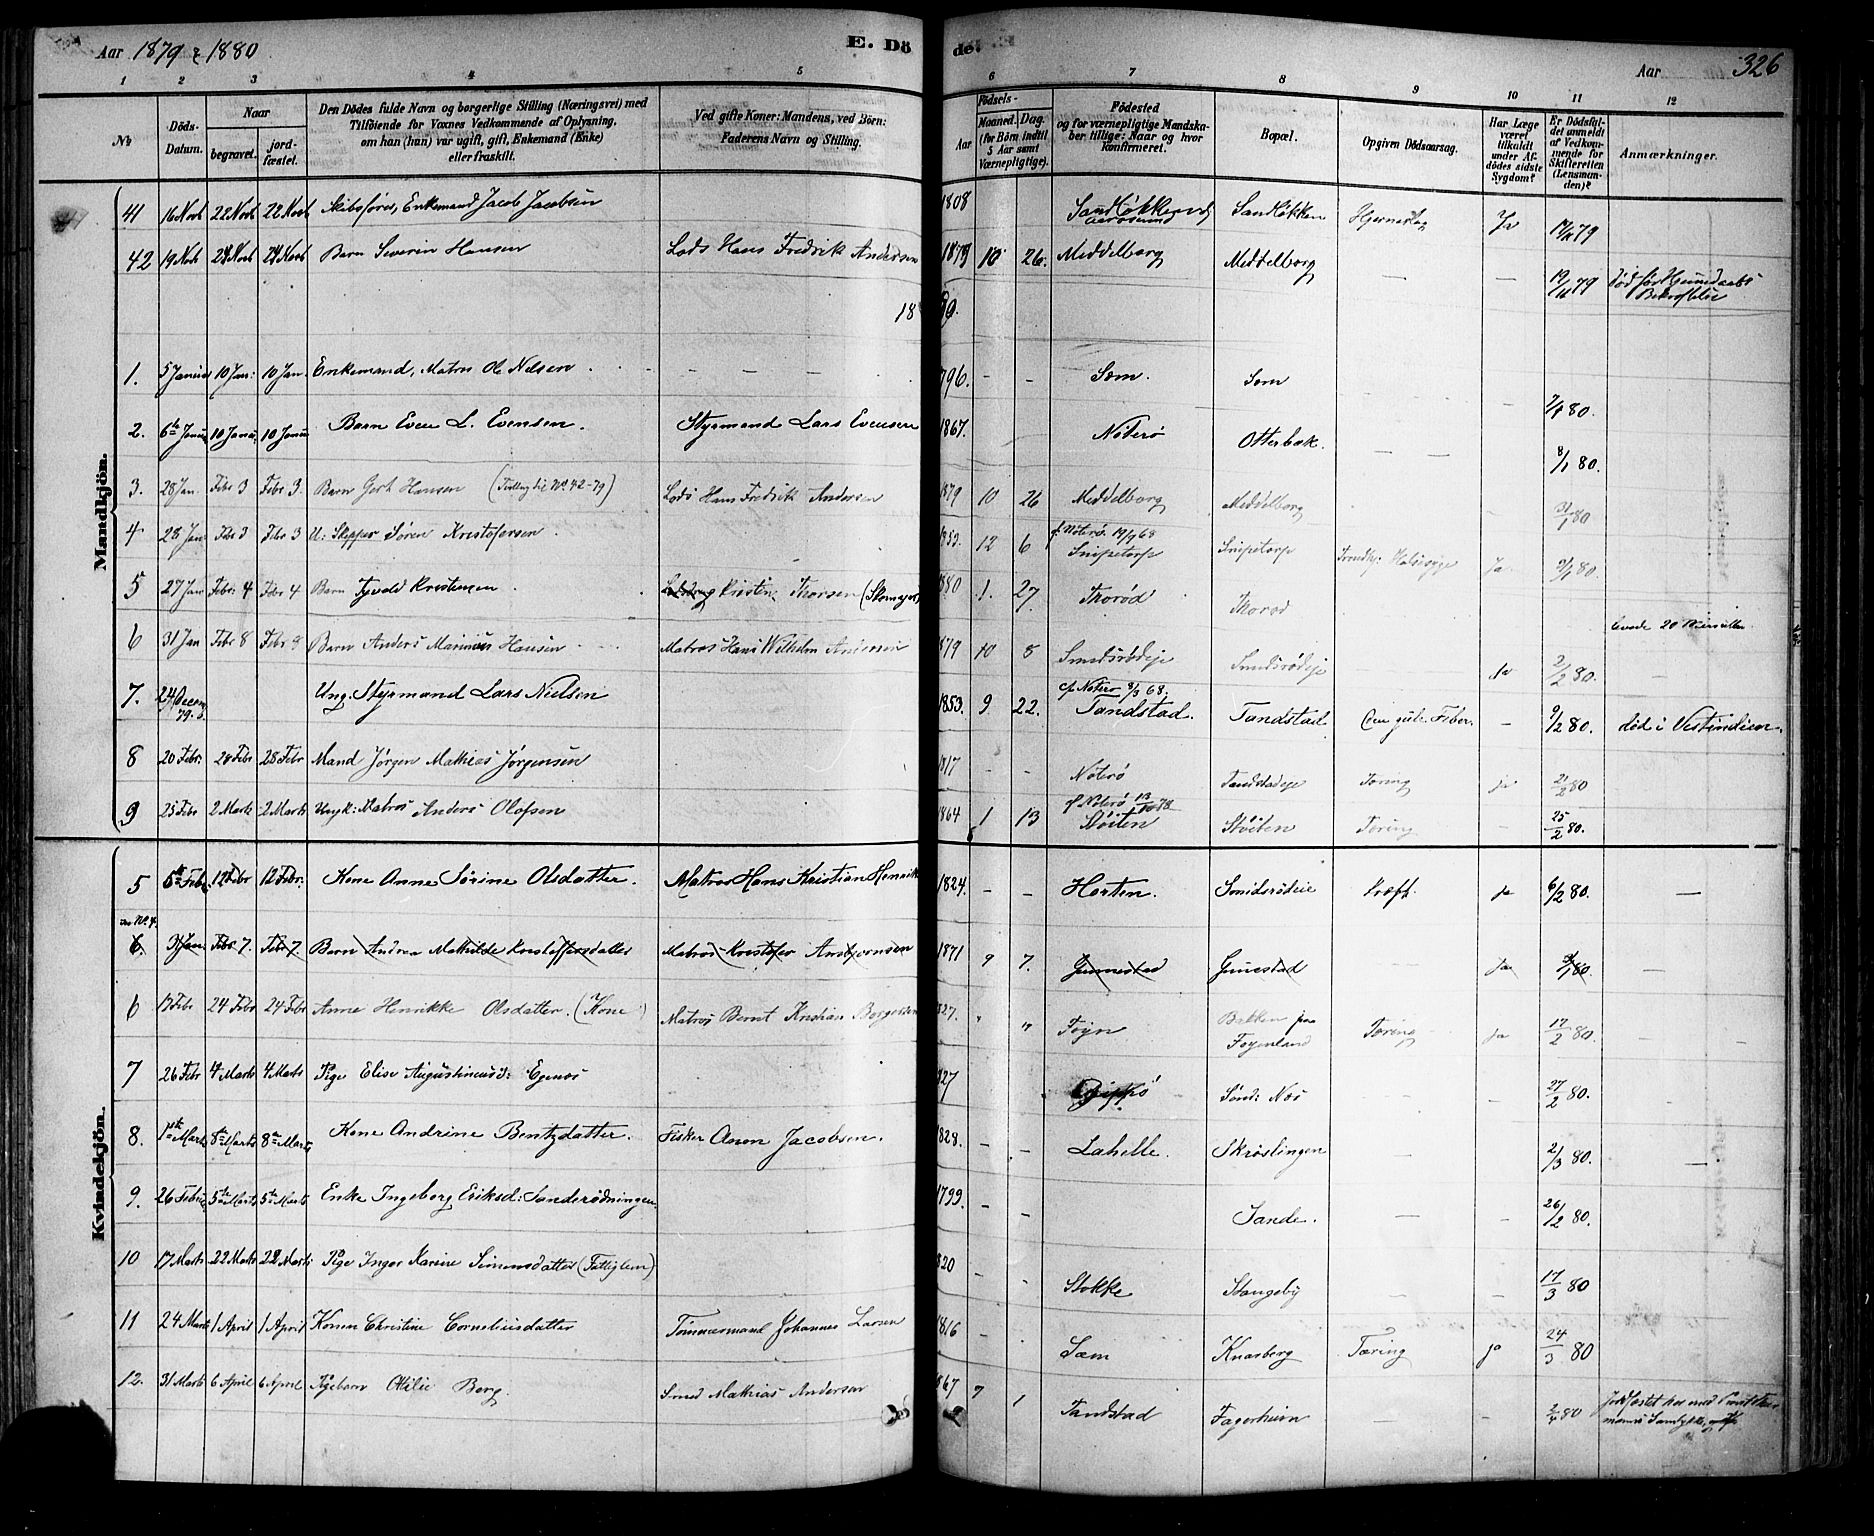 Aar 1879 & 1880
E. Dö
de.
Aar
326
1 2 3 4 5 6 7 8 9 10 11 12
No
Döds-Datum.
Naar
begravet.
jord-fæstet.
Den Dödes fulde Navn og borgerlige Stilling (Næringsvei) med
Tilföiende for Voxnes Vedkommende af Oplysning,
om han (hun) var ugift, gift, Enkemand (Enke)
eller fraskilt.
Ved gifte Koner: Mandens, ved Börn:
Faderens Navn og Stilling.
Födsels-
Aar
Maaned. Dag.
(for Börn indtil
5 Aar samt
Værnepligtige).
Födested
og for værnepligtige Mandska-
ber tillige: Naar og hvor
konfirmeret.
Bopæl.
Opgiven Dödsaarsag.
Har Læge
været
tilkaldt
under Af-
dödes sidste
Sygdom?
Er Dödsfal-
det anmeldt
af Vedkom-
mende for
Skifteretten
(Lensman-
den)?
Anmærkninger.
Mandkjön.
41 16 Novb 22 Novb 22 Novb Skibsförer, Enkemand Jacob Jacobsen 1808 Sandløkken Ja
42 19 Novb Barn Severin Hansen Lods Hans Fredrik Andersen 1879 10 26. Meddelborg Meddelborg — — 19/11 79
1880.
1. 5 Januar 10 Jan: 10 Jan Enkemand, Matros Ole Nilsen . - - - - 1796. - - Sem. Sem 7/1 80.
2. 6te Janu 10 Janu 10 Janu Barn Even L. Evensen. Styrmand Lars Evensen 1867. Nöterö Otterbæk. — — 8/1 80.
3. 28 Jan Febr 3 Febr 3. Barn Gert Hansen (Tvilling til No 42-79) Lods Hans Fredrik Andersen 1879 10 26 Meddelborg Meddelborg 31/1 80
4 28 Jan Febr 3 Febr 3 U: Skipper Sören Kristofersen 1853. 12 6 Nöterö 19/9 68 Snipetorp Snipetorp Ja
5 27 Jan Febr: 4 Febr 4 Barn Tjvald Kristensen Kristen Thorsen 1880 1. 27 Thoröd Thorod levede 20 Minutter
6 31 Jan Febr 8 Febr 8 Barn Anders Marinius Hansen Matros Hans Wilhelm Andersen 1879 10 8 Smidsrödeje Smidsrödeje Ja 2/2 80.
7. 24 Decem 79. Ung. Styrmand Lars Nielsen 1853. 9 22. cf Noterö 8/3 68. Tandstad. Tandstad Den gule Feber. - 9/2 80. död i Vestindien
8 20 Febr: 28 Febr 28 Febr Mand Jörgen Mathias Jörgensen 1817 - - Nöterö Tandstadeje Tæring ja 21/2 80
9 25 Febr 2 Marts 2 Marts Ungk: Matros Anders Olafsen 1864 1 13 cf Noterö 13/10 78 Stöiten Stöiten Tæring - 25/2 80.
Kvindekjön.
5 5te Febr. 12 Febr 12 Febr. Kone Anne Sörine Olsdatter. Matros Hans Kristian Henrik 1824. - - Horten. Smidsrödeie Kræft. ja 6/2 80. —
6. 31 Jan. Febr 7. Febr 7. Barn Andrea Mathilde Kristoffersdatter Matros Kristofer Ansbjornsen 1871 9 7. Gunnestad Gunestad Ja 80 —
6 17 Febr 24 Febr 24 Febr Anne Henrikke Olsdatter. (Kone) Matros Bernt Kristian 1827. " " Föyn Bakken paa Föyenland Tæring ja 17/2 80.
7 26 Febr 4 Marts 4 Marts Pige Elise Augustinusd: Egenæs 1827 Söndr Næs - - 27/2 80.
8. 1ste Marts 8de Marts 8de Marts Kone Andrine Bentzdatter. Fisker Aron Jacobsen. 1828. - - Lahelle. Skröslingen 2/3 80. —
9. 26 Febru 5te Marts 5te Marts Enke Ingeborg Eriksd: Sanderödningen 1799. - - Sande. — - 26/2 80.
10 17 Marts 22 Marts 22 Marts Pige Inger Karine Simensdatter (Fattiglem) 1820 - - Stokke Stangeby — - 17/3 80
11 24 Marts 1 April 1 April Konen Christine Corneliusdatter Tömmermand Johannes Larsen 1816 - Sæm Knarberg Tæring ja 24/3 80
12. 31 Marts 6 April 6 April Pigebarn Otilie Berg. Smed Mathias Andersen 1867 7 1 Tandstad Fagerheim — - 2/4 80